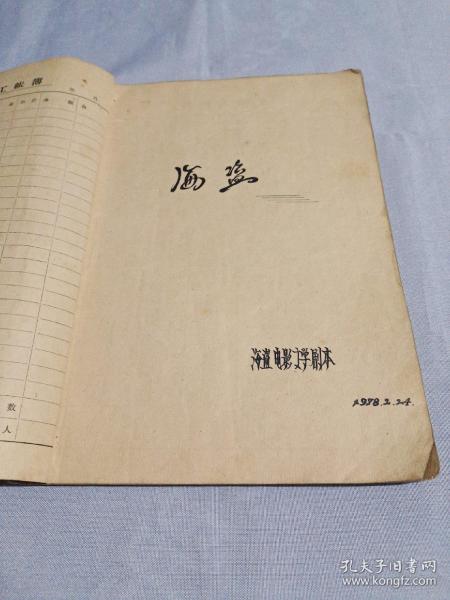 工帳簿
海盗
海盗电影文学剧本
1978.2.24.
数
人
孔夫子旧书网
www.kongfz.com